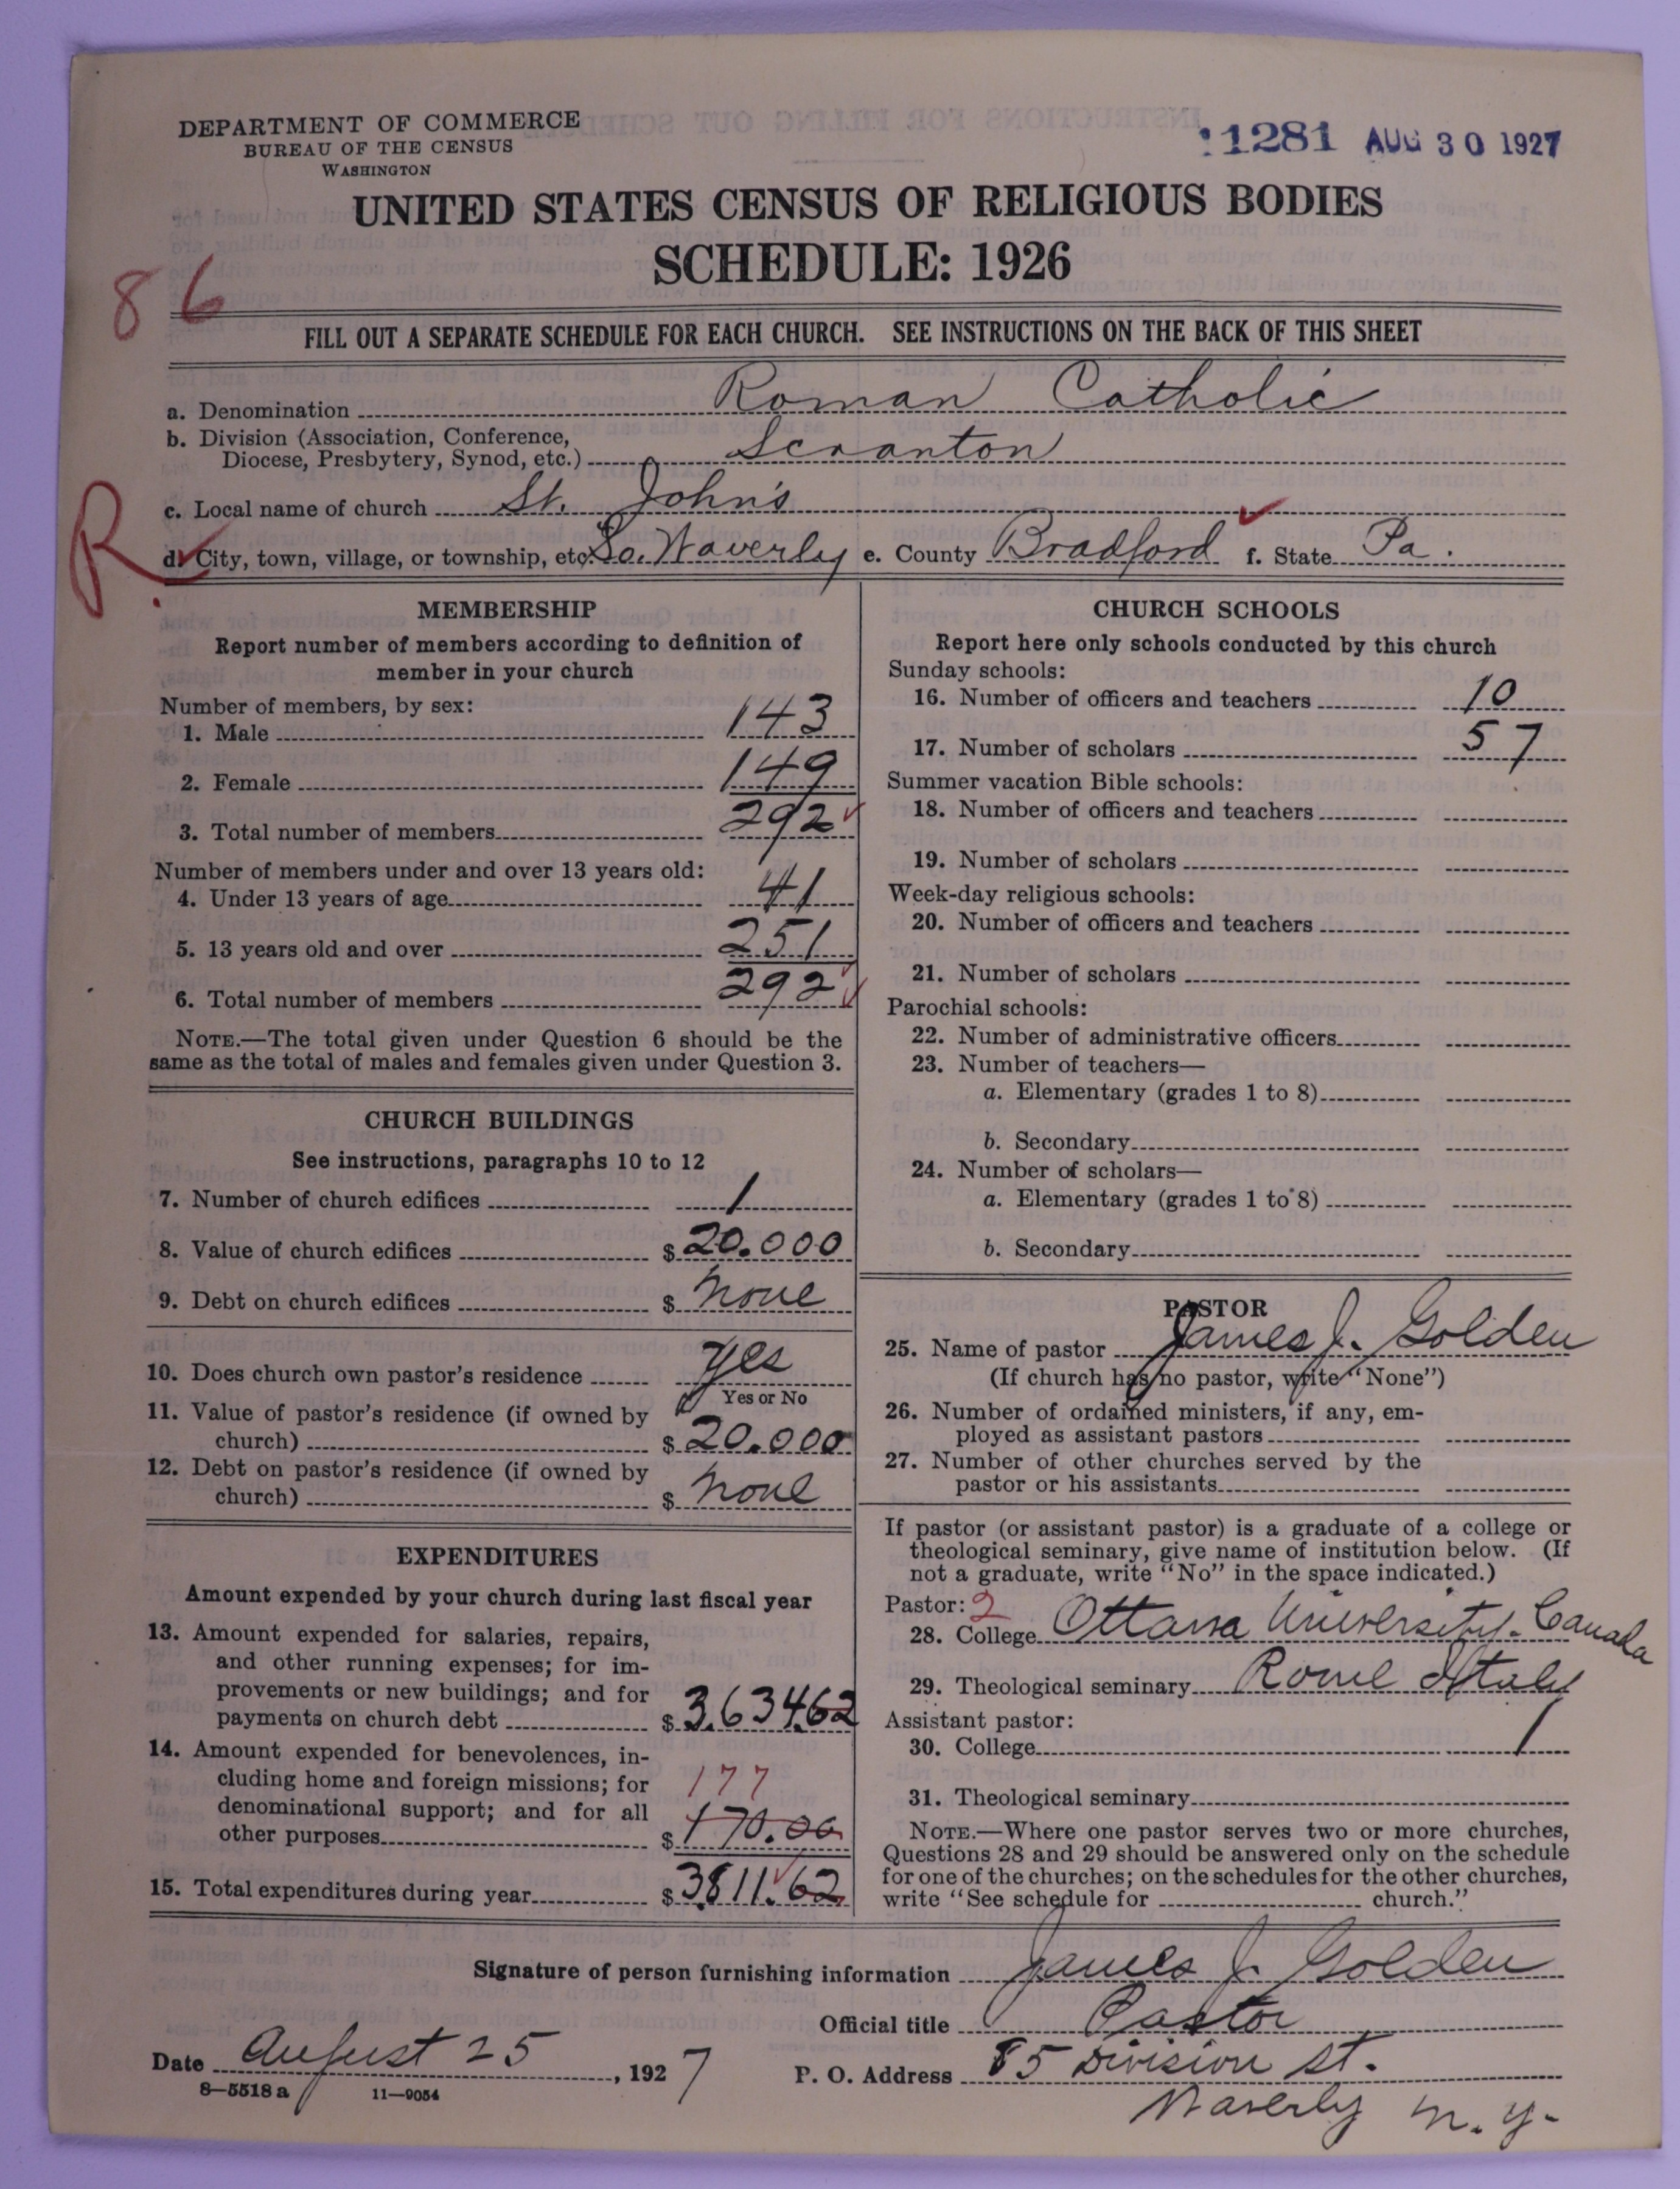 DEPARTMENT OF COMMERCE
BUREAU OF THE CENSUS
WASHINGTON
11281 AUG 30 1927
UNITED STATES CENSUS OF RELIGIOUS BODIES
SCHEDULE: 1926
86
FILL OUT A SEPARATE SCHEDULE FOR EACH CHURCH. SEE INSTRUCTIONS ON THE BACK OF THIS SHEET
a. Denomination Roman Catholic
b. Division (Association, Conference,
Diocese, Presbytery, Synod, etc.) Scranton
c. Local name of church St. John's
R
d. City, town, village, or township, etc. So. Waverly e. County Bradford f. State Pa.
MEMBERSHIP
Report number of members according to definition of
member in your church
Number of members, by sex:
1. Male 143
2. Female 149
3. Total number of members 292
Number of members under and over 13 years old:
4. Under 13 years of age 41
5. 13 years old and over 251
6. Total number of members 292
NOTE.—The total given under Question 6 should be the
same as the total of males and females given under Question 3.
CHURCH BUILDINGS
See instructions, paragraphs 10 to 12
7. Number of church edifices 1
8. Value of church edifices $ 20.000
9. Debt on church edifices $ None
10. Does church own pastor's residence Yes
Yes or No
11. Value of pastor's residence (if owned by
church) $ 20.000
12. Debt on pastor's residence (if owned by
church) $ None
EXPENDITURES
Amount expended by your church during last fiscal year
13. Amount expended for salaries, repairs,
and other running expenses; for im-
provements or new buildings; and for
payments on church debt $ 3,634.62
14. Amount expended for benevolences, in-
cluding home and foreign missions; for 177
denominational support; and for all
other purposes $ 170.00
15. Total expenditures during year $ 3811.62
CHURCH SCHOOLS
Report here only schools conducted by this church
Sunday schools:
16. Number of officers and teachers 10
17. Number of scholars 57
Summer vacation Bible schools:
18. Number of officers and teachers
19. Number of scholars
Week-day religious schools:
20. Number of officers and teachers
21. Number of scholars
Parochial schools:
22. Number of administrative officers
23. Number of teachers—
a. Elementary (grades 1 to 8)
b. Secondary
24. Number of scholars—
a. Elementary (grades 1 to 8)
b. Secondary
PASTOR
25. Name of pastor James J. Golden
(If church has no pastor, write "None")
26. Number of ordained ministers, if any, em-
ployed as assistant pastors
27. Number of other churches served by the
pastor or his assistants
If pastor (or assistant pastor) is a graduate of a college or
theological seminary, give name of institution below. (If
not a graduate, write "No" in the space indicated.)
Pastor: 2
28. College Ottawa University. Canada
29. Theological seminary Rome Italy
Assistant pastor:
30. College
31. Theological seminary
NOTE.—Where one pastor serves two or more churches,
Questions 28 and 29 should be answered only on the schedule
for one of the churches; on the schedules for the other churches,
write "See schedule for church."
Signature of person furnishing information James J. Golden
Official title Pastor
Date August 25, 1927 P. O. Address 85 Division St.
Waverly N. Y.
8—5518 a 11—9054